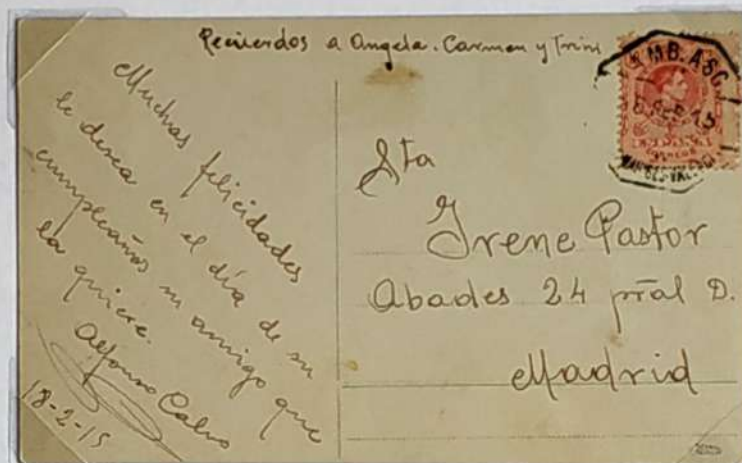 Recuerdos a Angela. Carmen y Trini
Muchas felicidades
le desea en el día de su
cumpleaños su amigo que
la quiere.
Alfonso Calvo
18-2-15
Sta
Irene Pastor
Abades 24 pral D.
Madrid
AMB. ASC.